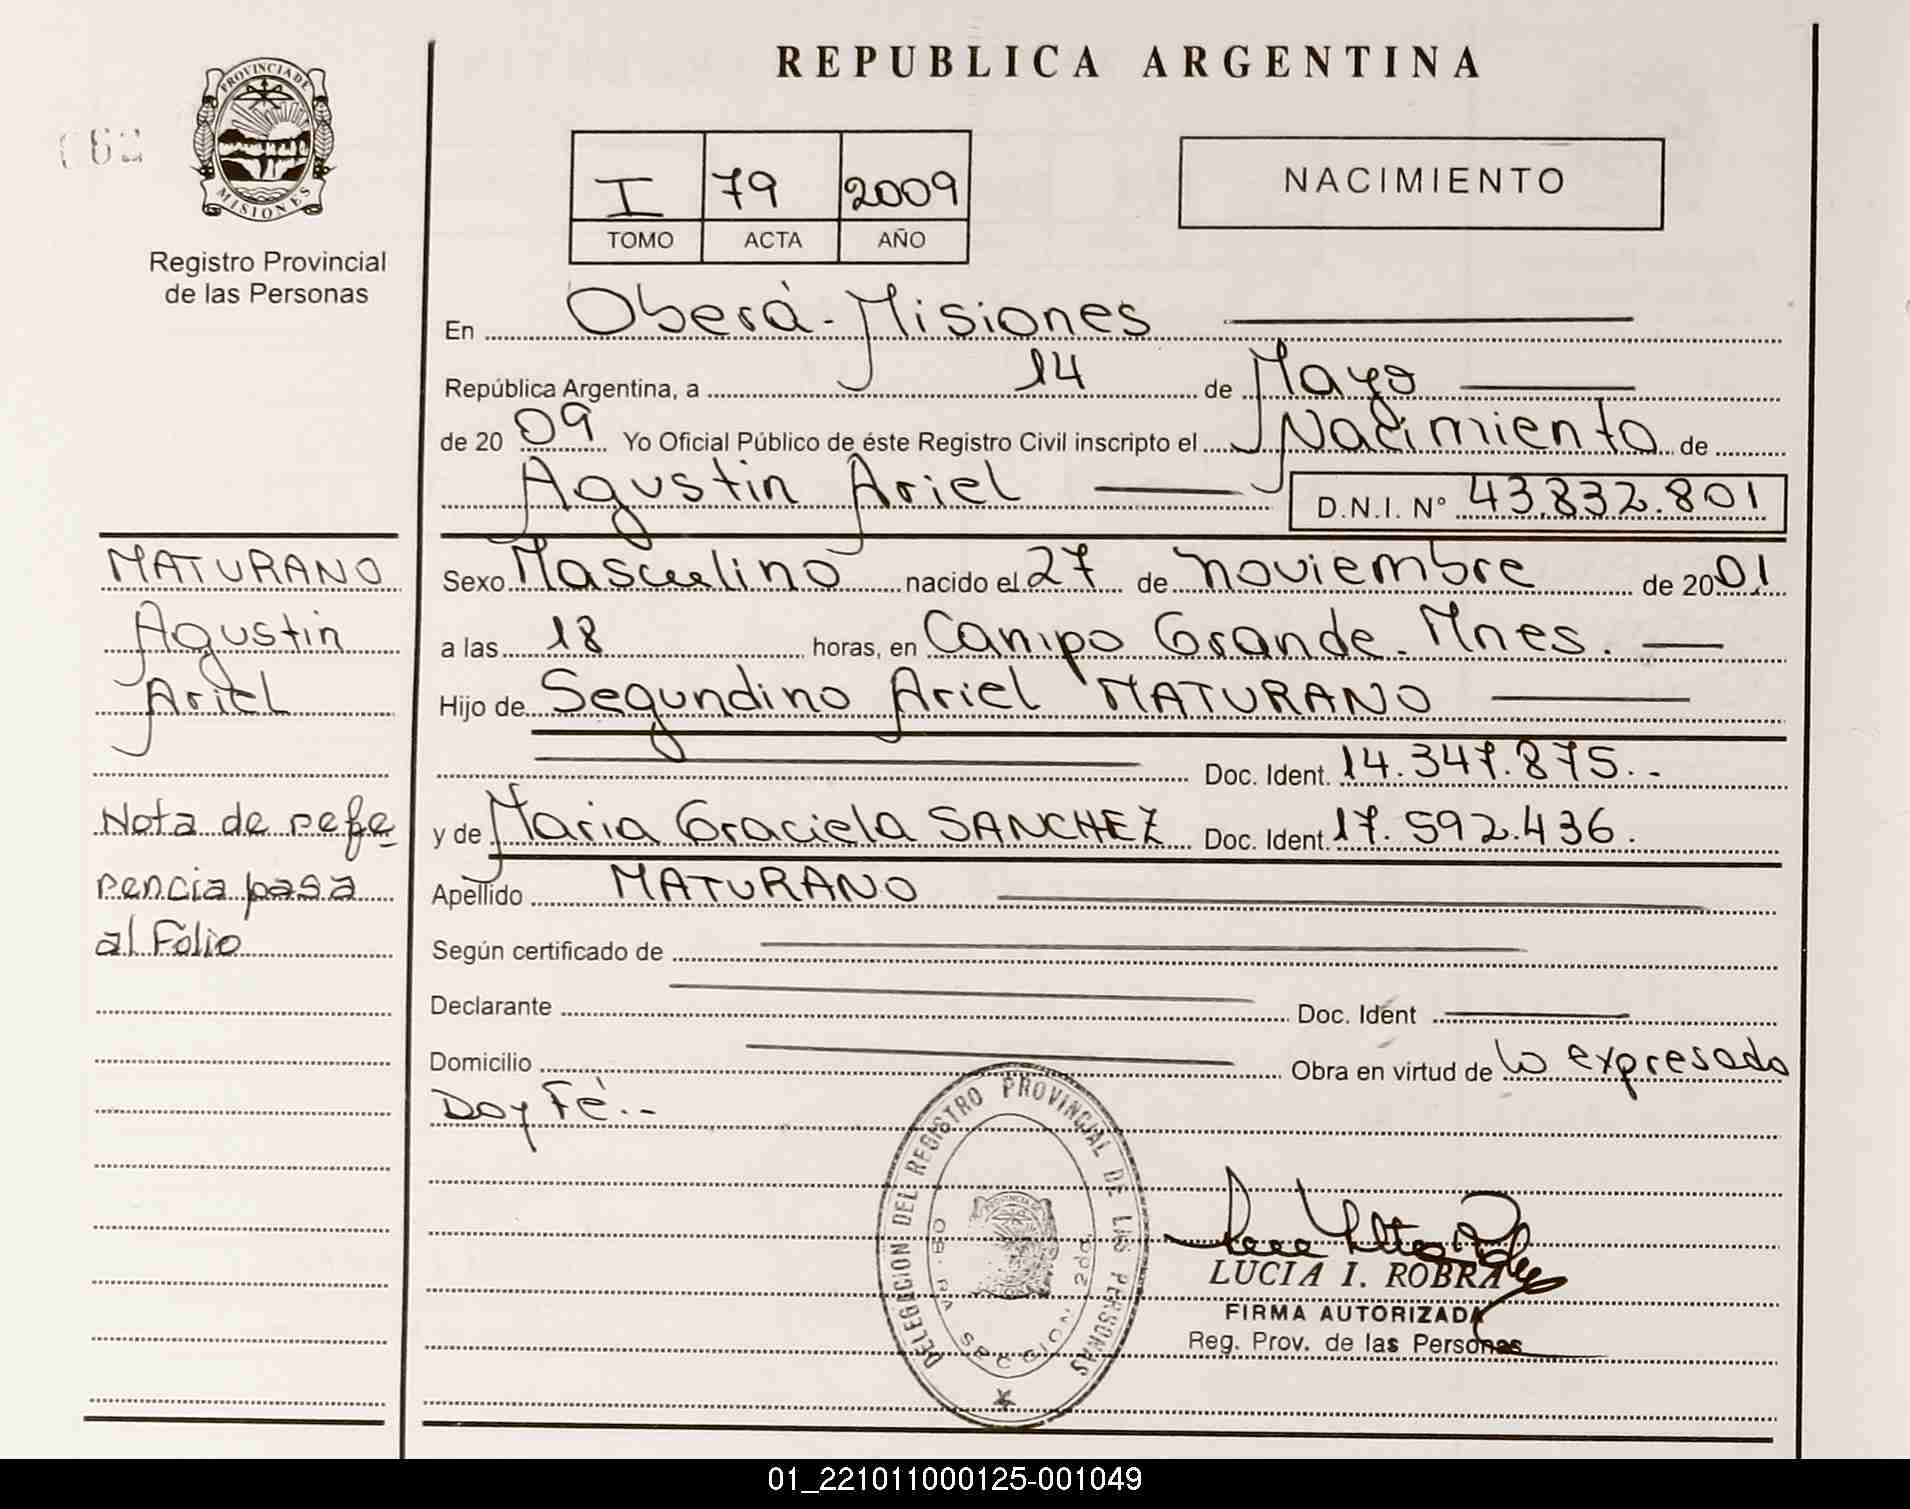 REPUBLICA ARGENTINA
PROVINCIA DE
MISIONES
062
Registro Provincial
de las Personas
I 79 2009
TOMO ACTA AÑO
NACIMIENTO
En Oberá - Misiones
República Argentina, a 14 de Mayo
de 20 09 Yo Oficial Público de éste Registro Civil inscripto el Nacimiento de
Agustin Ariel D.N.I. Nº 43.832.801
MATURANO
Agustin
Ariel
Nota de refe
rencia pasa
al Folio
Sexo Masculino nacido el 27 de noviembre de 2001
a las 18 horas, en Campo Grande. Mnes.
Hijo de Segundino Ariel MATURANO
Doc. Ident. 14.347.875..-
y de Maria Graciela SANCHEZ Doc. Ident. 17.592.436.
Apellido MATURANO
Según certificado de
Declarante Doc. Ident
Domicilio Obra en virtud de lo expresado
Doy Fé..-
DELEGACION DEL REGISTRO PROVINCIAL DE LAS PERSONAS
OB RA SECCION 2da
LUCIA I. ROBRA
FIRMA AUTORIZADA
Reg. Prov. de las Personas
01_221011000125-001049